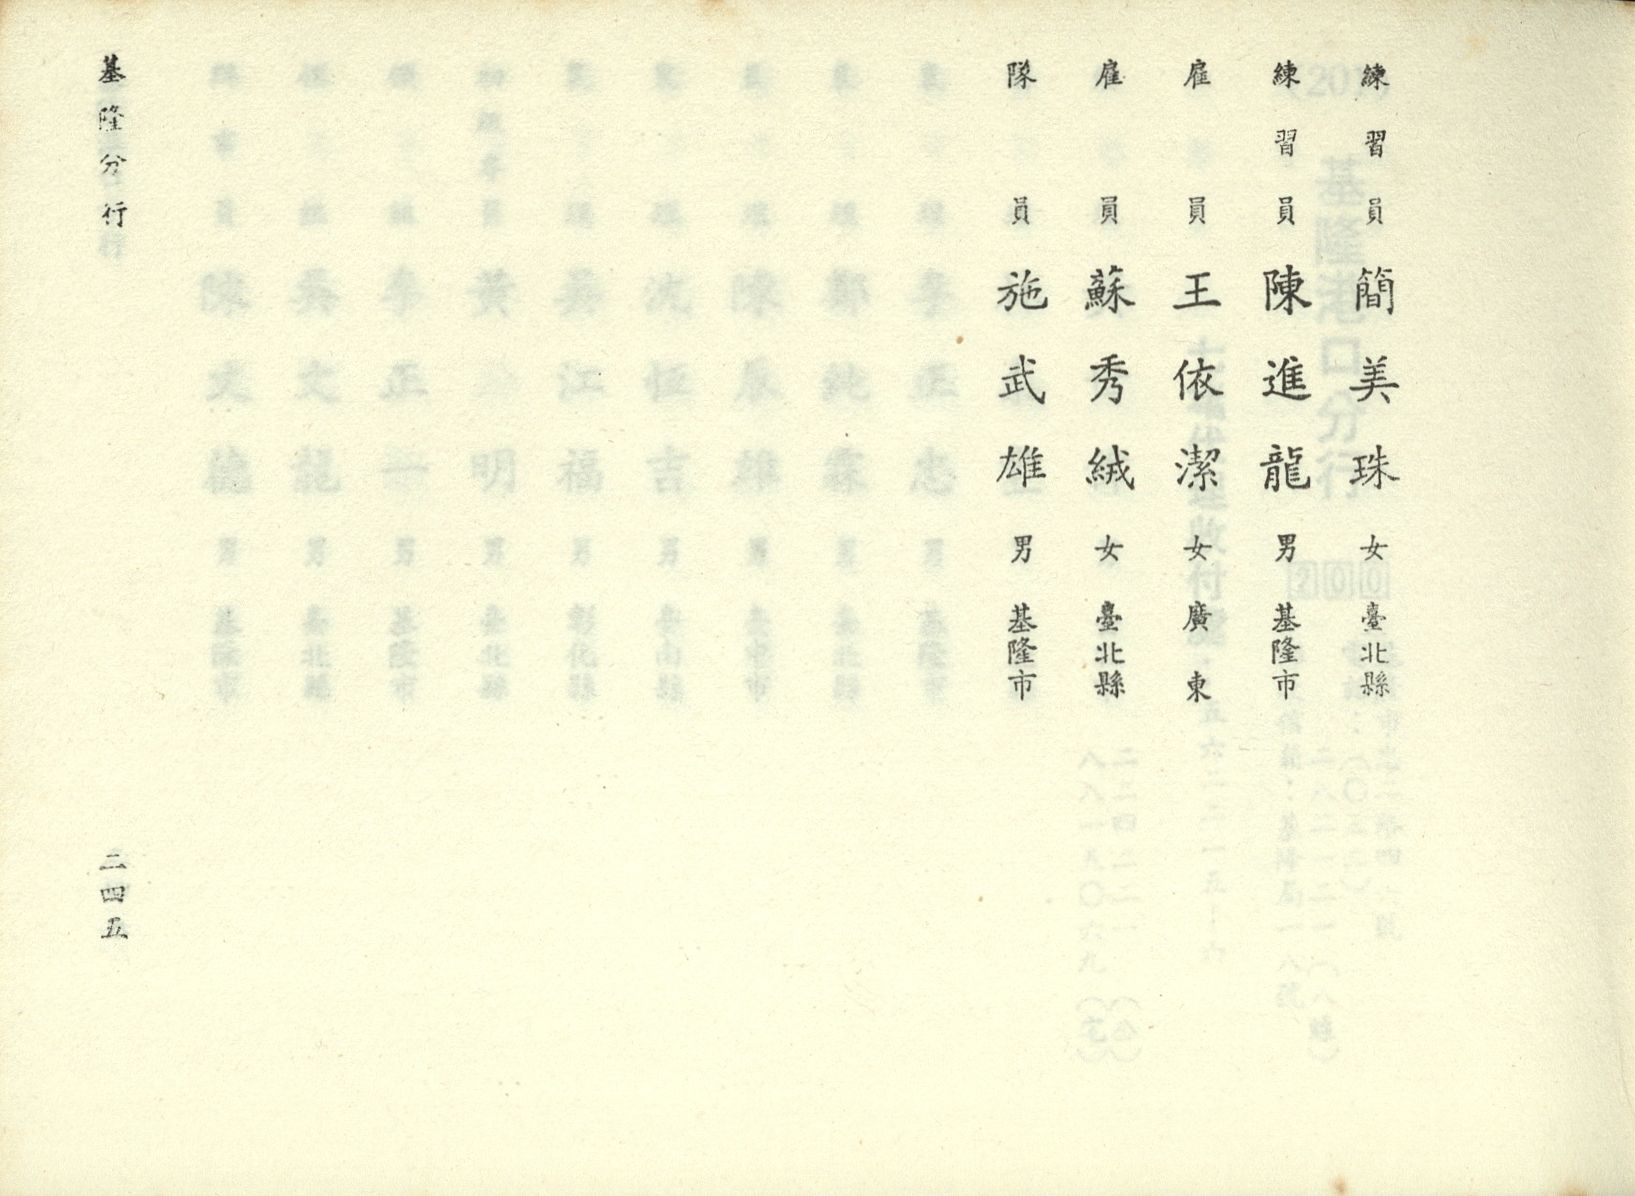 練習員 簡美珠 女 臺北縣
練習員 陳進龍 男 基隆市
雇員 王依潔 女 廣東
雇員 蘇秀絨 女 臺北縣
隊員 施武雄 男 基隆市
基隆分行
二四五